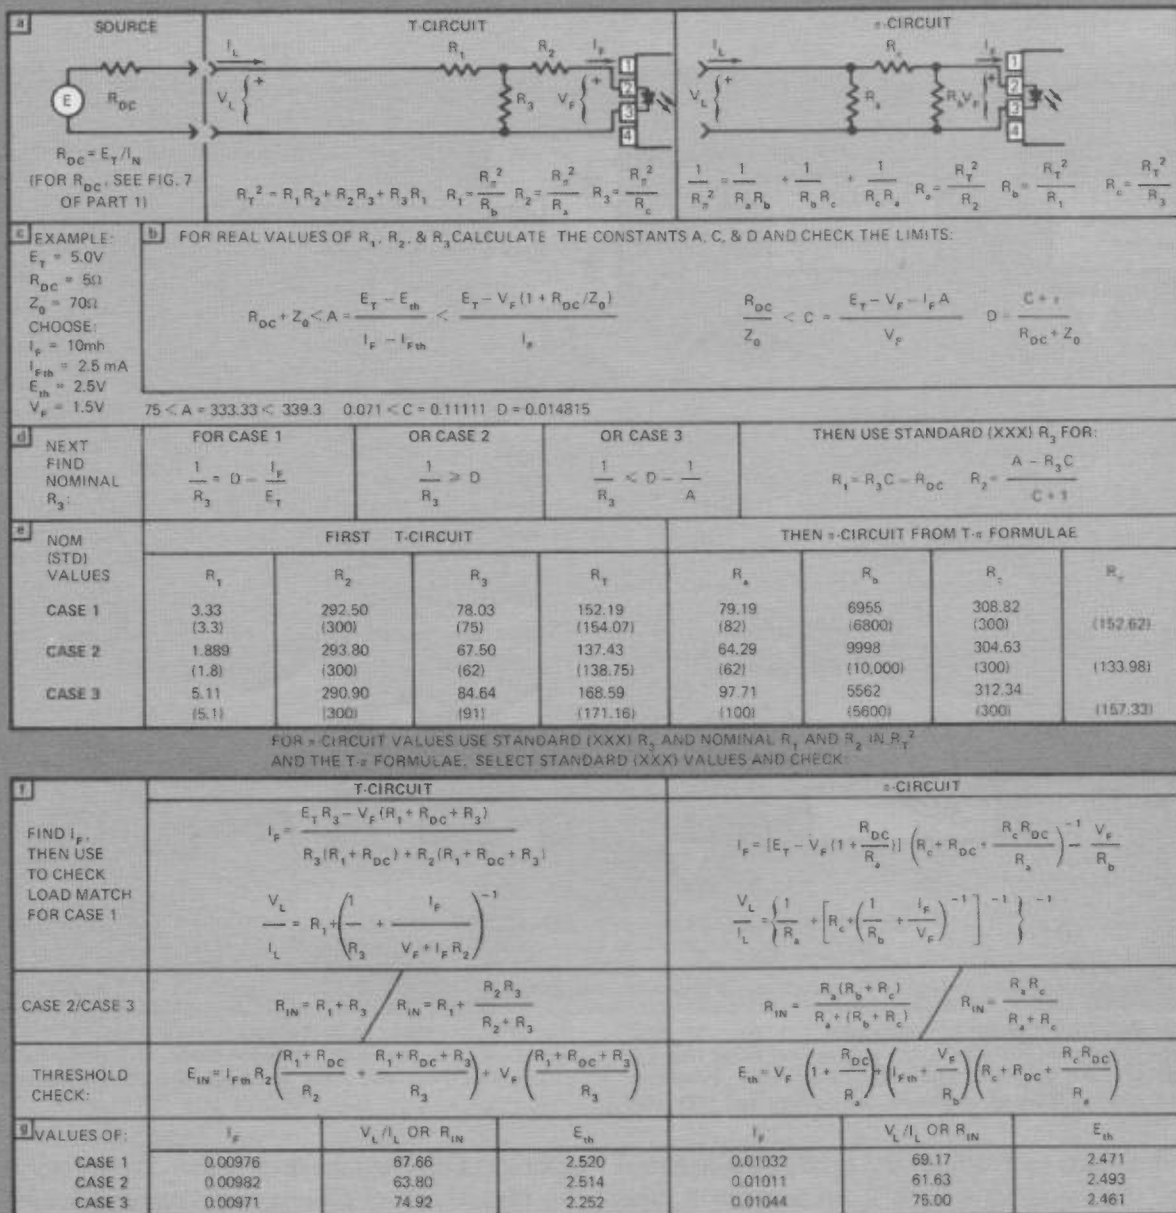 a SOURCE
T-CIRCUIT
π-CIRCUIT
I_L R_1 R_2 I_F
I_L R_c I_F
E R_DC V_L { + R_3 V_F { + 1 2 3 4
V_L { + R_a R_b V_F { + 1 2 3 4
R_DC = E_T/I_N
(FOR R_DC, SEE FIG. 7
OF PART 1)
R_T² = R_1 R_2 + R_2 R_3 + R_3 R_1 R_1 = R_π²/R_b R_2 = R_π²/R_a R_3 = R_π²/R_c
1/R_π² = 1/(R_a R_b) + 1/(R_b R_c) + 1/(R_c R_a) R_a = R_T²/R_2 R_b = R_T²/R_1 R_c = R_T²/R_3
c EXAMPLE:
E_T = 5.0V
R_DC = 5Ω
Z_0 = 70Ω
CHOOSE:
I_F = 10mh
I_Fth = 2.5 mA
E_th = 2.5V
V_F = 1.5V
b FOR REAL VALUES OF R_1, R_2, & R_3 CALCULATE THE CONSTANTS A, C, & D AND CHECK THE LIMITS:
R_DC + Z_0 < A = (E_T − E_th)/(I_F − I_Fth) < (E_T − V_F (1 + R_DC/Z_0))/I_F
R_DC/Z_0 < C = (E_T − V_F − I_F A)/V_F D = /(R_DC + Z_0)
75 < A = 333.33 < 339.3 0.071 < C = 0.11111 D = 0.014815
d NEXT
FIND
NOMINAL
R_3:
FOR CASE 1
1/R_3 = D − I_F/E_T
OR CASE 2
1/R_3 ≥ D
OR CASE 3
1/R_3 < D − 1/A
THEN USE STANDARD (XXX) R_3 FOR:
R_1 = R_3 C − R_DC R_2 = (A − R_3 C)/(C + 1)
e NOM
(STD)
VALUES
FIRST T-CIRCUIT
THEN π-CIRCUIT FROM T-π FORMULAE
R_1 R_2 R_3 R_T R_a R_b R_c R_π
CASE 1 3.33 292.50 78.03 152.19 79.19 6955 308.82
(3.3) (300) (75) (154.07) (82) (6800) (300) (152.62)
CASE 2 1.889 293.80 67.50 137.43 64.29 9998 304.63
(1.8) (300) (62) (138.75) (62) (10,000) (300) (133.98)
CASE 3 5.11 290.90 84.64 168.59 97.71 5562 312.34
(5.1) (300) (91) (171.16) (100) (5600) (300) (157.33)
FOR π-CIRCUIT VALUES USE STANDARD (XXX) R_3 AND NOMINAL R_1 AND R_2 IN R_T²
AND THE T-π FORMULAE. SELECT STANDARD (XXX) VALUES AND CHECK:
f
T-CIRCUIT
π-CIRCUIT
FIND I_F,
THEN USE
TO CHECK
LOAD MATCH
FOR CASE 1
I_F = (E_T R_3 − V_F (R_1 + R_DC + R_3))/(R_3 (R_1 + R_DC) + R_2 (R_1 + R_DC + R_3))
V_L/I_L = R_1 + (1/R_3 + I_F/(V_F + I_F R_2))^−1
I_F = [E_T − V_F (1 + R_DC/R_a)] (R_c + R_DC + R_c R_DC/R_a)^−1 − V_F/R_b
V_L/I_L = {1/R_a + [R_c + (1/R_b + I_F/V_F)^−1]^−1}^−1
CASE 2/CASE 3
R_IN = R_1 + R_3 / R_IN = R_1 + R_2 R_3/(R_2 + R_3)
R_IN = R_a (R_b + R_c)/(R_a + (R_b + R_c)) / R_IN = R_a R_c/(R_a + R_c)
THRESHOLD
CHECK:
E_IN = I_Fth R_2 ((R_1 + R_DC)/R_2 + (R_1 + R_DC + R_3)/R_3) + V_F ((R_1 + R_DC + R_3)/R_3)
E_th = V_F (1 + R_DC/R_a) + (I_Fth + V_F/R_b) (R_c + R_DC + R_c R_DC/R_a)
g VALUES OF: I_F V_L/I_L OR R_IN E_th I_F V_L/I_L OR R_IN E_th
CASE 1 0.00976 67.66 2.520 0.01032 69.17 2.471
CASE 2 0.00982 63.80 2.514 0.01011 61.63 2.493
CASE 3 0.00971 74.92 2.252 0.01044 75.00 2.461